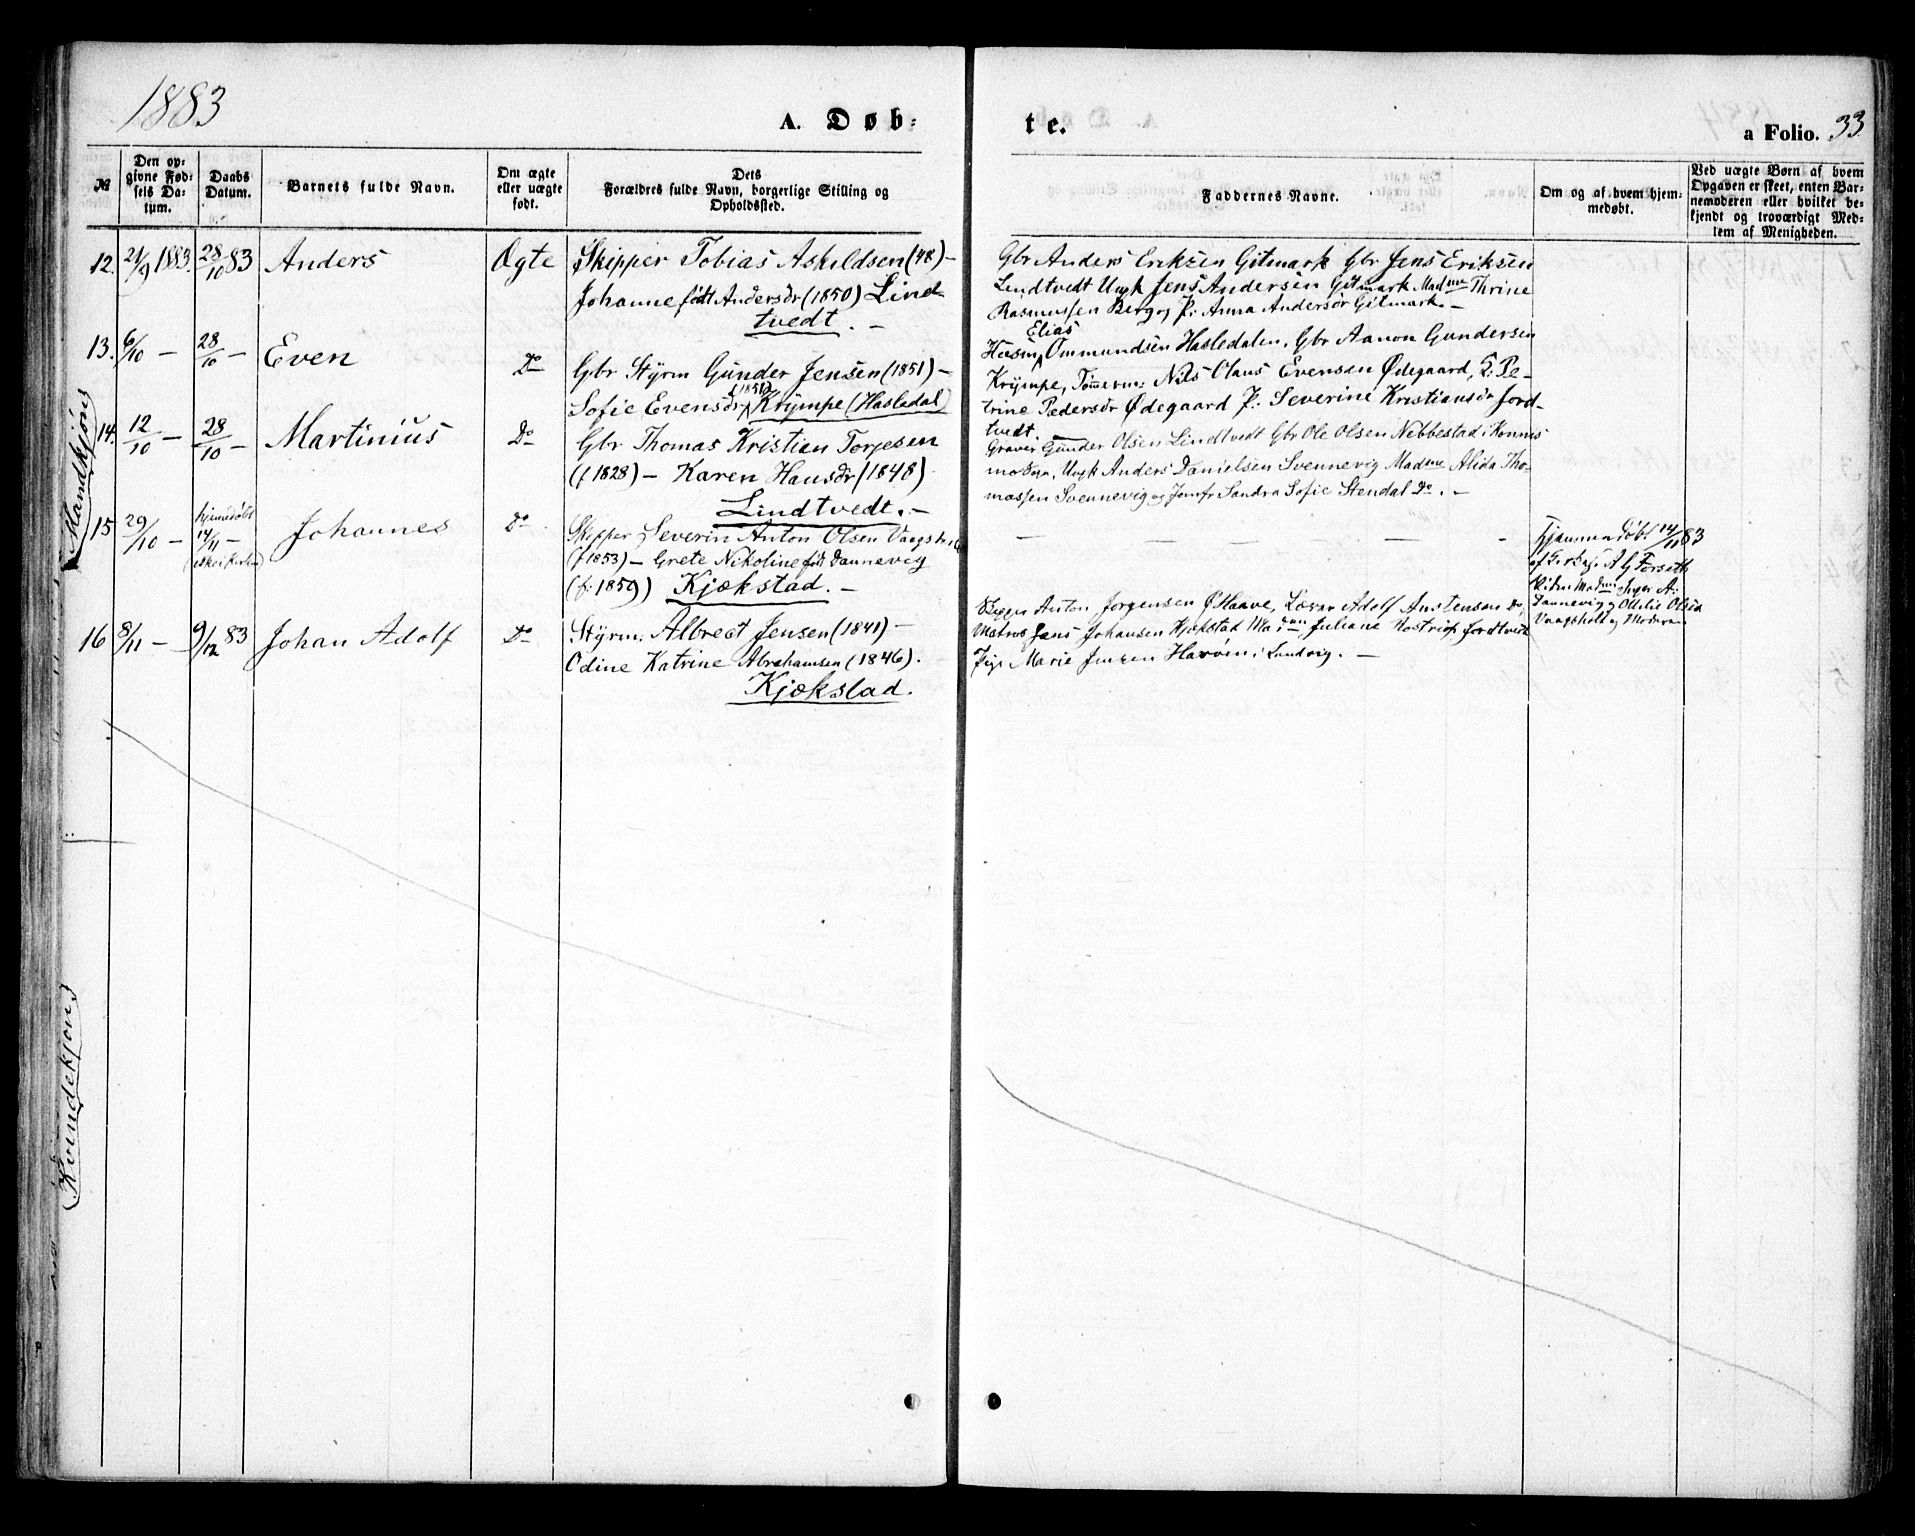 1883
A. Døb-
te.
a Folio. 33
№
Den op-
givne Fød-
sels Da-
tum.
Daabs
Datum.
Barnets fulde Navn.
Om ægte
eller uægte
født.
Dets
Forældres fulde Navn, borgerlige Stilling og
Opholdssted.
Faddernes Navne.
Om og af hvem hjem-
medøbt.
Ved uægte Børn af hvem
Opgaven er skeet, enten Bar-
nemoderen eller hvilket be-
kjendt og troværdigt Med-
lem af Menigheden.
Mandkjøn
12. 21/9 1883. 28/10 83 Anders Ægte Skipper Tobias Askildsen (48) –
Johanne født Andersdr (1850) Lind-
tvedt. –
Gbr Anders Eriksen Gitmark Gbr Jens Eriksen
Lindtvedt Ungk Jens Andersen Gitmark Madme Thrine
Rasmussen Berg og P: Anna Andersdr Gitmark. –
13. 6/10 – 28/10 – Even Do Gbr Styrm Gunder Jensen (1851) –
Sofie Evensdr (1851) Krympe (Hasledal)
Elias
Huusm Ommundsen Hasledalen, Gbr Aanon Gundersen
Krympe, Tømmerm: Nils Olaus Evensen Ødegaard, P: Pe-
trine Pedersdr Ødegaard P: Severine Kristiansdr Jord-
tvedt.
14. 12/10 – 28/10 – Martinius Do Gbr Thomas Kristian Torjesen
(f 1828) – Karen Hansdr (1848)
Lindtvedt. –
Graver Gunder Olsen Lindtvedt Gbr Ole Olsen Nebbestad i Konnes-
mo Sogn, Ungk Anders Danielsen Svennevig Madme Alida Tho-
massen Svennevig og Jomfr Sandra Sofie Stendal Do. –
15 29/10 – hjemmedøbt
14/11 –
(ikke i Kirken) Johannes Do Skipper Severin Anton Olsen Vaagsholt
(f 1853) – Grete Nikoline født Dannevig
(f. 1859) Kjækstad. –
Hjemmedøbt 14/11 83
af A G Forseth
Madme Inger A.
Dannevig og Ottilie Olsen
Vaagsholt og Moderen
16 8/11 – 9/12 83 Johan Adolf Do Styrm: Albrect Jensen (1841) –
Odine Katrine Abrahamsen (1846).
Kjækstad.
Anton Jørgensen Ø Haave, Adolf Anstensen Do,
Matros Jens Johansen Kjækstad Madam Juliane Nostrup Jordtvedt
Pige Marie Jensen Haven i Landvig. –
Kvindekjøn